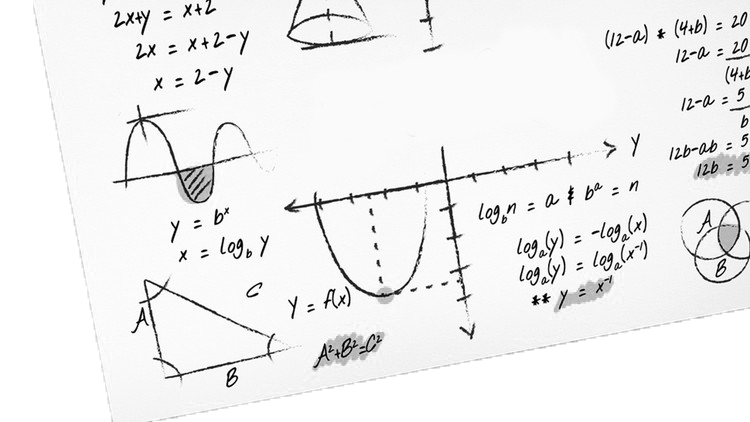 2x+y = x+2
2x = x+2-y
x = 2-y
y = bˣ
x = log_b y
A
C
B
Y = f(x)
A²+B²=C²
Y
log_b n = a & bᵃ = n
logₐ(y) = -logₐ(x)
logₐ(y) = logₐ(x⁻¹)
** y = x⁻¹
(12-a) * (4+b) = 20
12-a = 20
(4+b
12-a = 5
b
12b-ab = 5
12b = 5
A
B